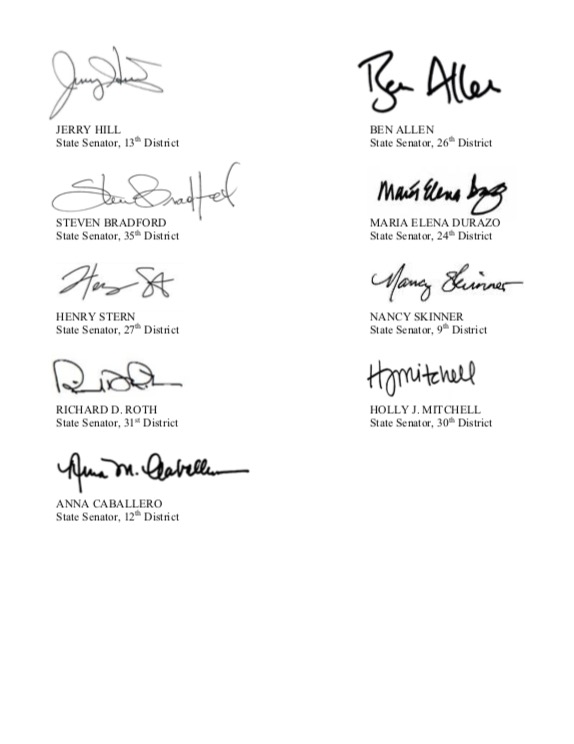 JERRY HILL
State Senator, 13th District
Ben Allen
BEN ALLEN
State Senator, 26th District
Steven Bradford
STEVEN BRADFORD
State Senator, 35th District
Maria Elena
MARIA ELENA DURAZO
State Senator, 24th District
HENRY STERN
State Senator, 27th District
Nancy Skinner
NANCY SKINNER
State Senator, 9th District
RICHARD D. ROTH
State Senator, 31st District
HJMitchell
HOLLY J. MITCHELL
State Senator, 30th District
Anna M. Caballero
ANNA CABALLERO
State Senator, 12th District